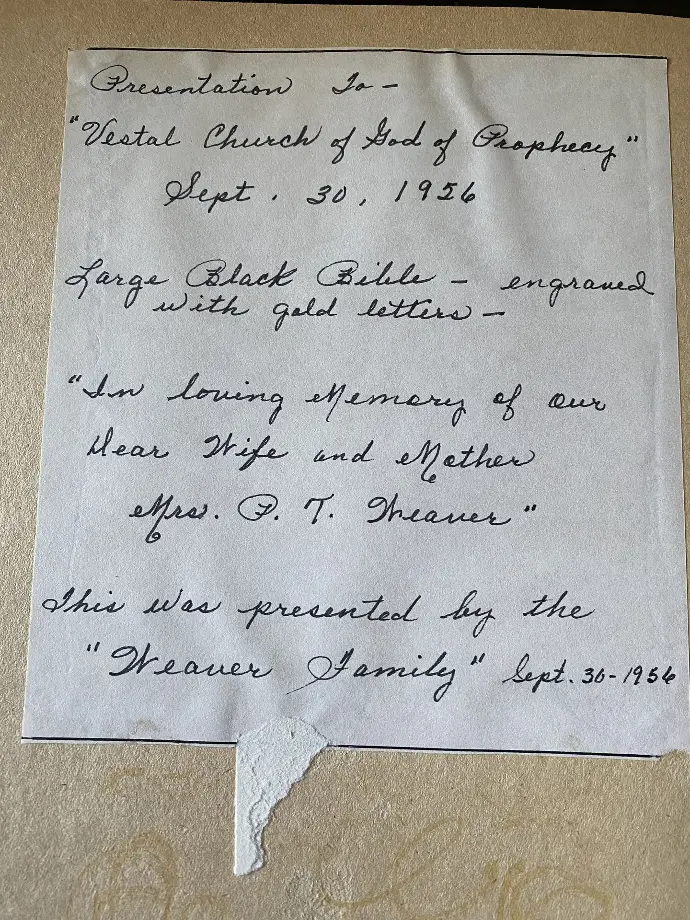 Presentation To -
"Vestal Church of God of Prophecy"
Sept. 30, 1956
Large Black Bible - engraved
with gold letters -
"In loving Memory of our
Dear Wife and Mother
Mrs. P. T. Weaver"
This was presented by the
"Weaver Family" Sept. 30-1956